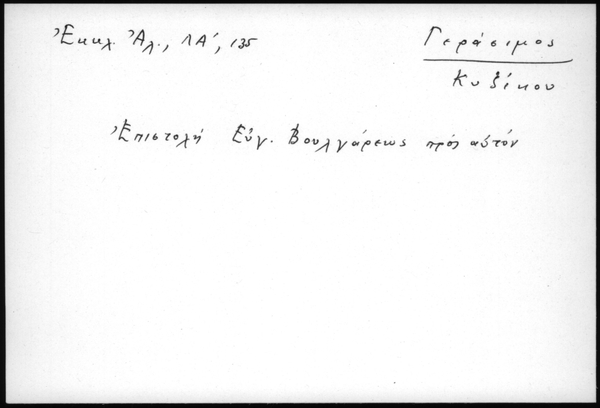 Ἐκκλ. Ἀλ., ΛΑ΄, 135
Γεράσιμος
Κυζίκου
Ἐπιστολή Εὐγ. Βουλγάρεως πρός αὐτόν